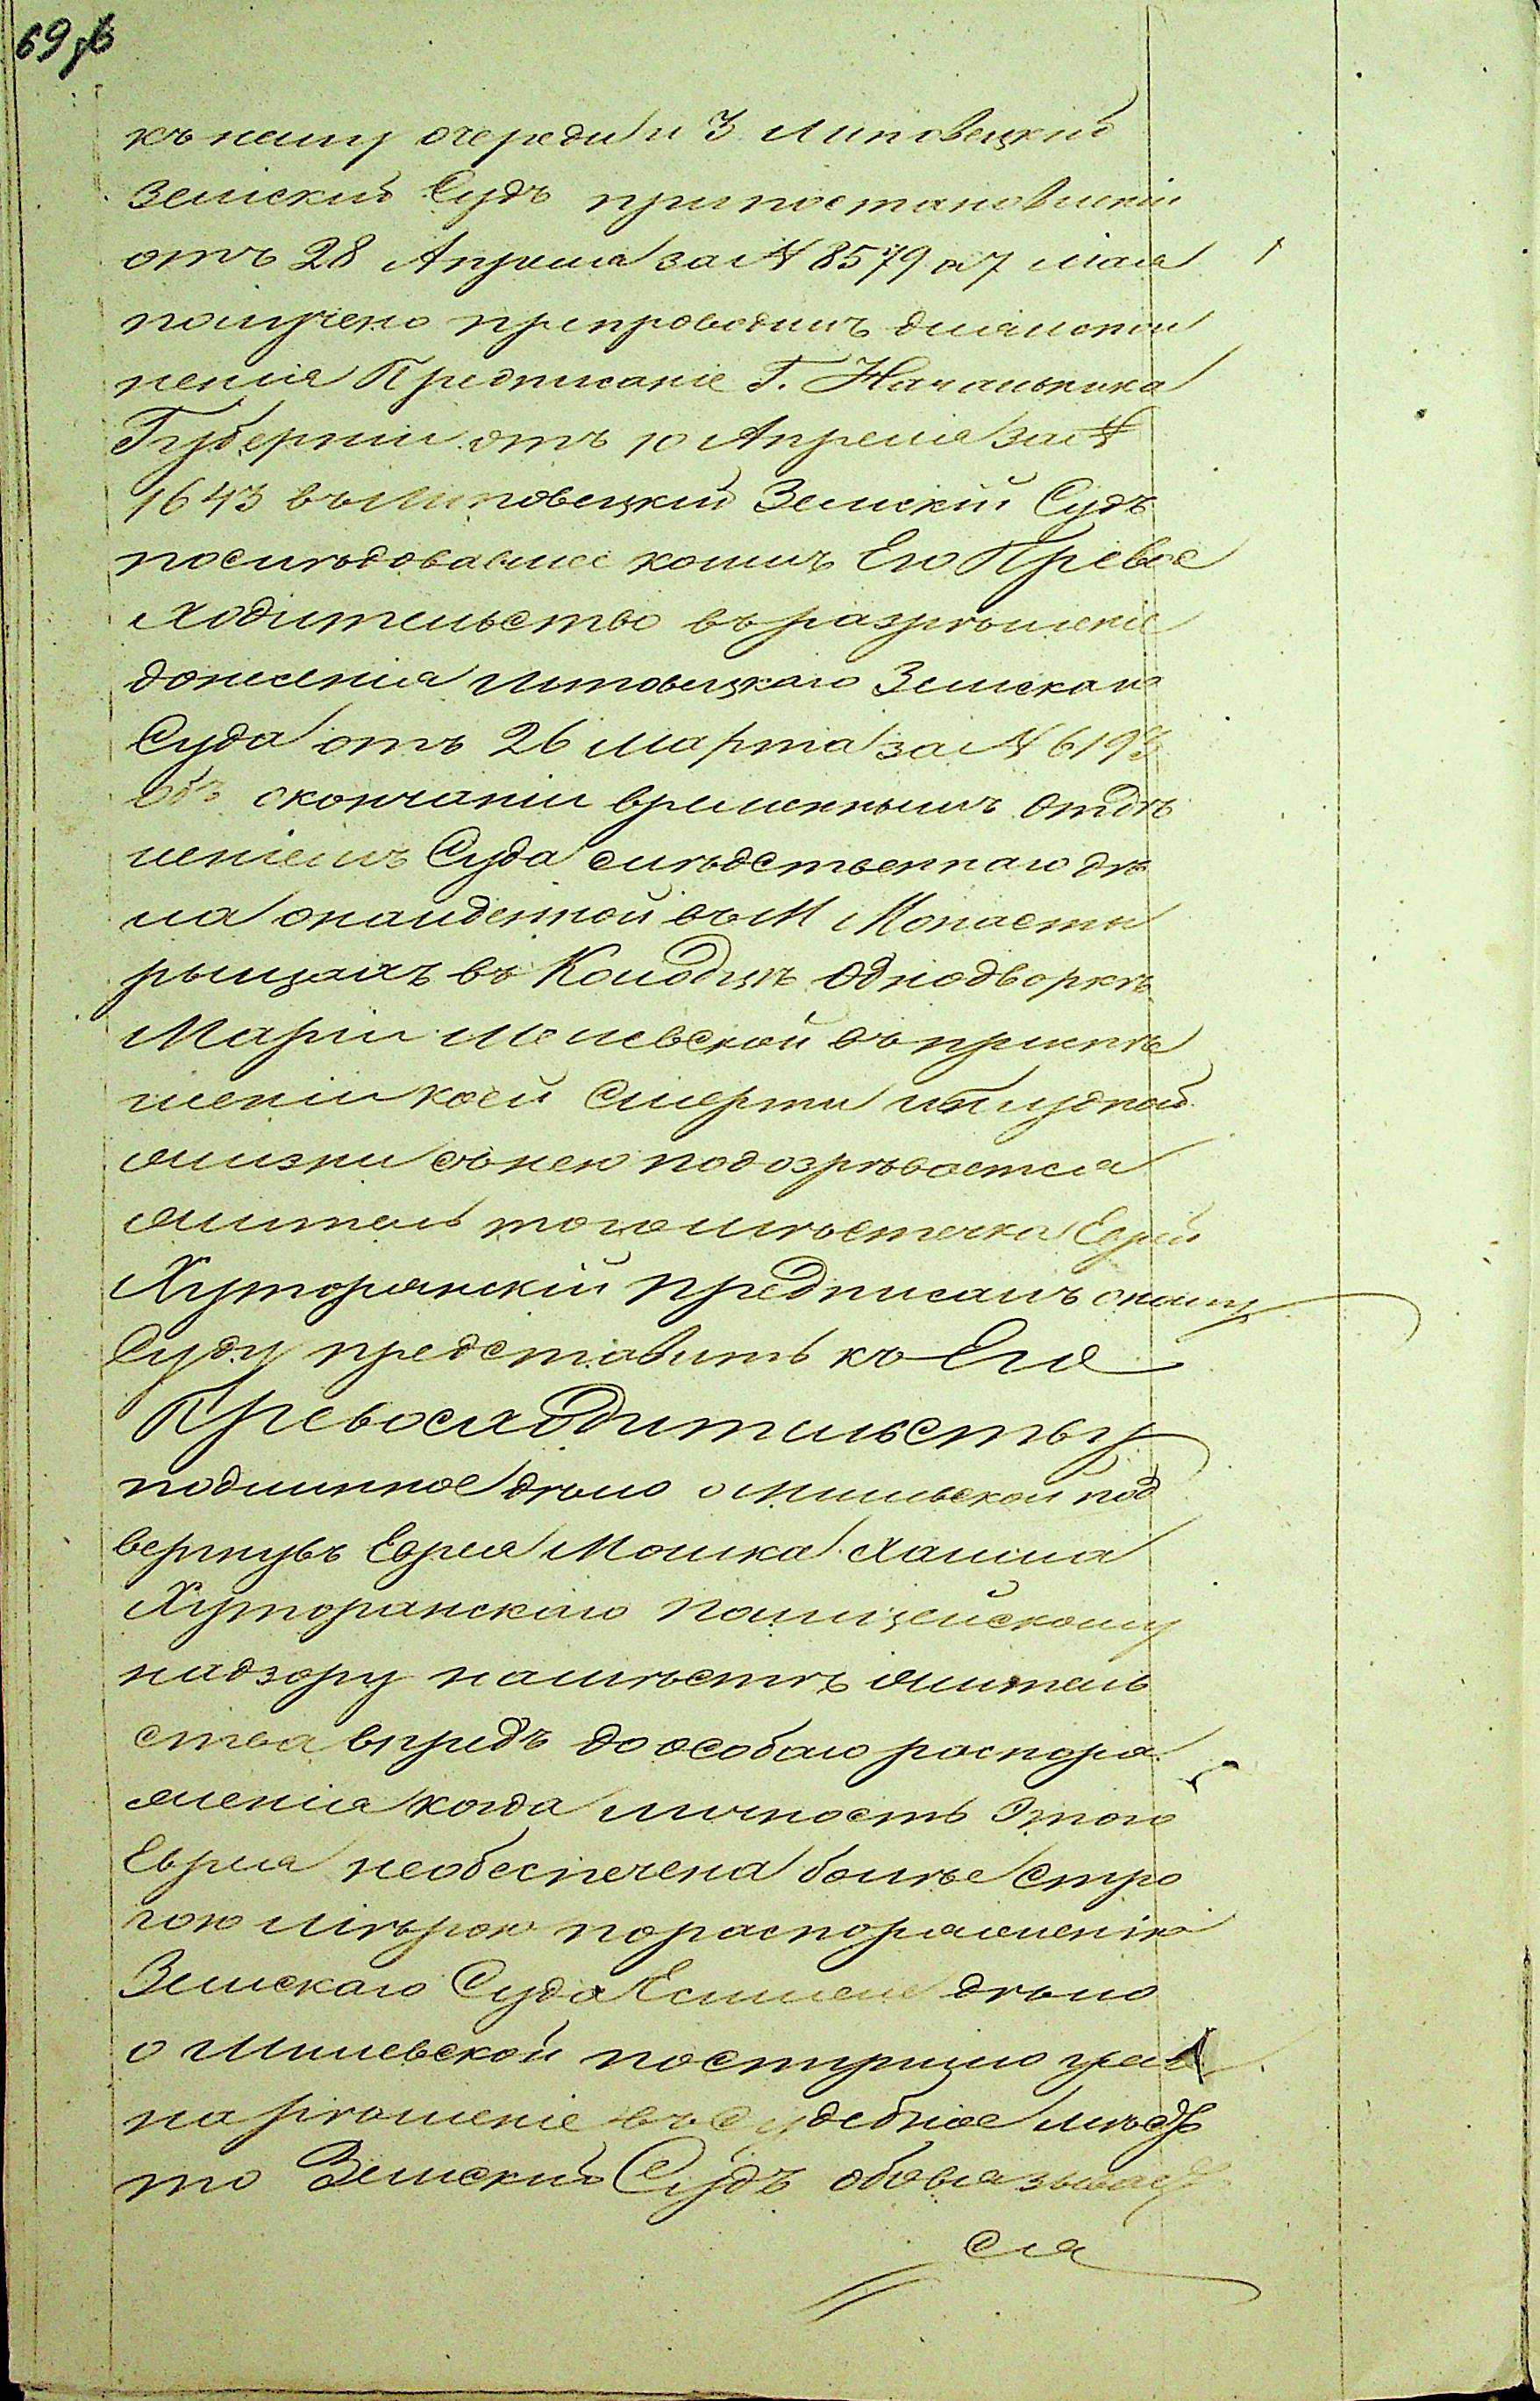 69 об
къ нему очереди и 3. Липовецкій
Земский Судъ при постановленіи
отъ 28 Апреля за № 8579 а 7 мая
получено препроводилъ для испол
ненія Предписаніе Г. Начальника
Губерніи отъ 10 Апреля за №
1643 въ Липовецкий Земскій Судъ
последовавшее коимъ Его Превос
ходительство въ разрѣшеніе
донесенія Липовецкаго Земскаго
Суда отъ 26 Марта за № 6193
объ окончаніи временнымъ Отдѣ
леніемъ Суда слѣдственнаго дѣ
ла онайденной въ М Монасты
рыщахъ въ Колодцѣ Однодворкѣ
Маріи Милевской въ приклю
ченіи коей Смерти и блудной
жизни съ нею подозрѣвается
житель того мѣстечка Еврей
Хуторянскій предписалъ оному
Суду представить къ Его
Превосходительству
подлинное дѣло о Милевской под
вергнувъ Еврея Мошка Хаима
Хуторанскаго Полицейскому
надзору на мѣстѣ житель
ства впредъ до особаго распоря
женія когда личность Этого
Еврея необеспечена болѣе стро
гою мѣрою по распоряженію
Земскаго Суда Если же дѣло
о Милевской поступило уже
на рѣшеніе въ судебное мѣсто
то Земский Судъ обовязывает
ся